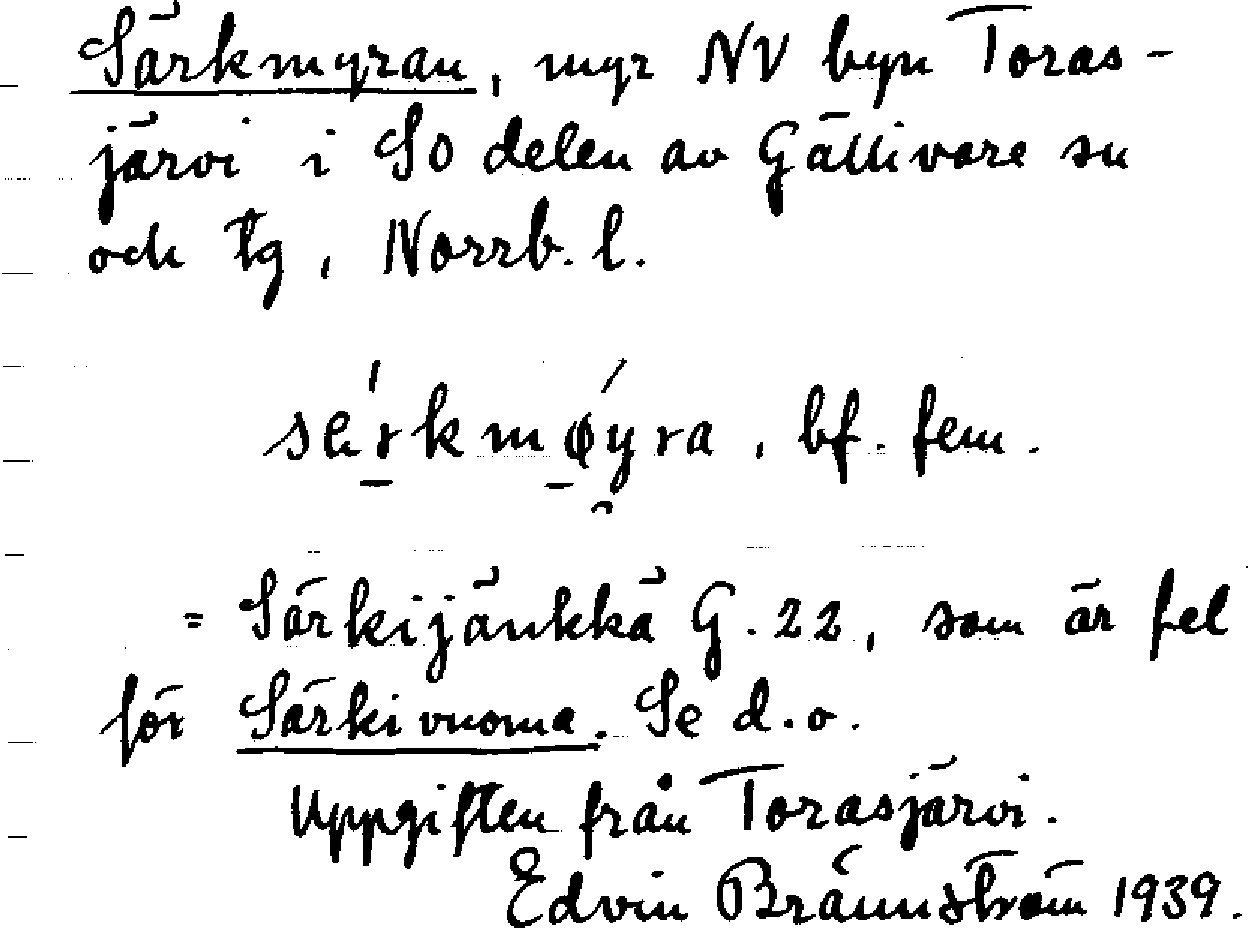 Särkmyran, myr NV byn Toras-
järvi i SO delen av Gällivare sn
och tg, Norrb. l.
, bf. fem.
= Särkijänkkä G. 22, som är fel
för Särkivuoma. Se d.o.
Uppgiften från Torasjärvi.
Edvin Brännström 1939.